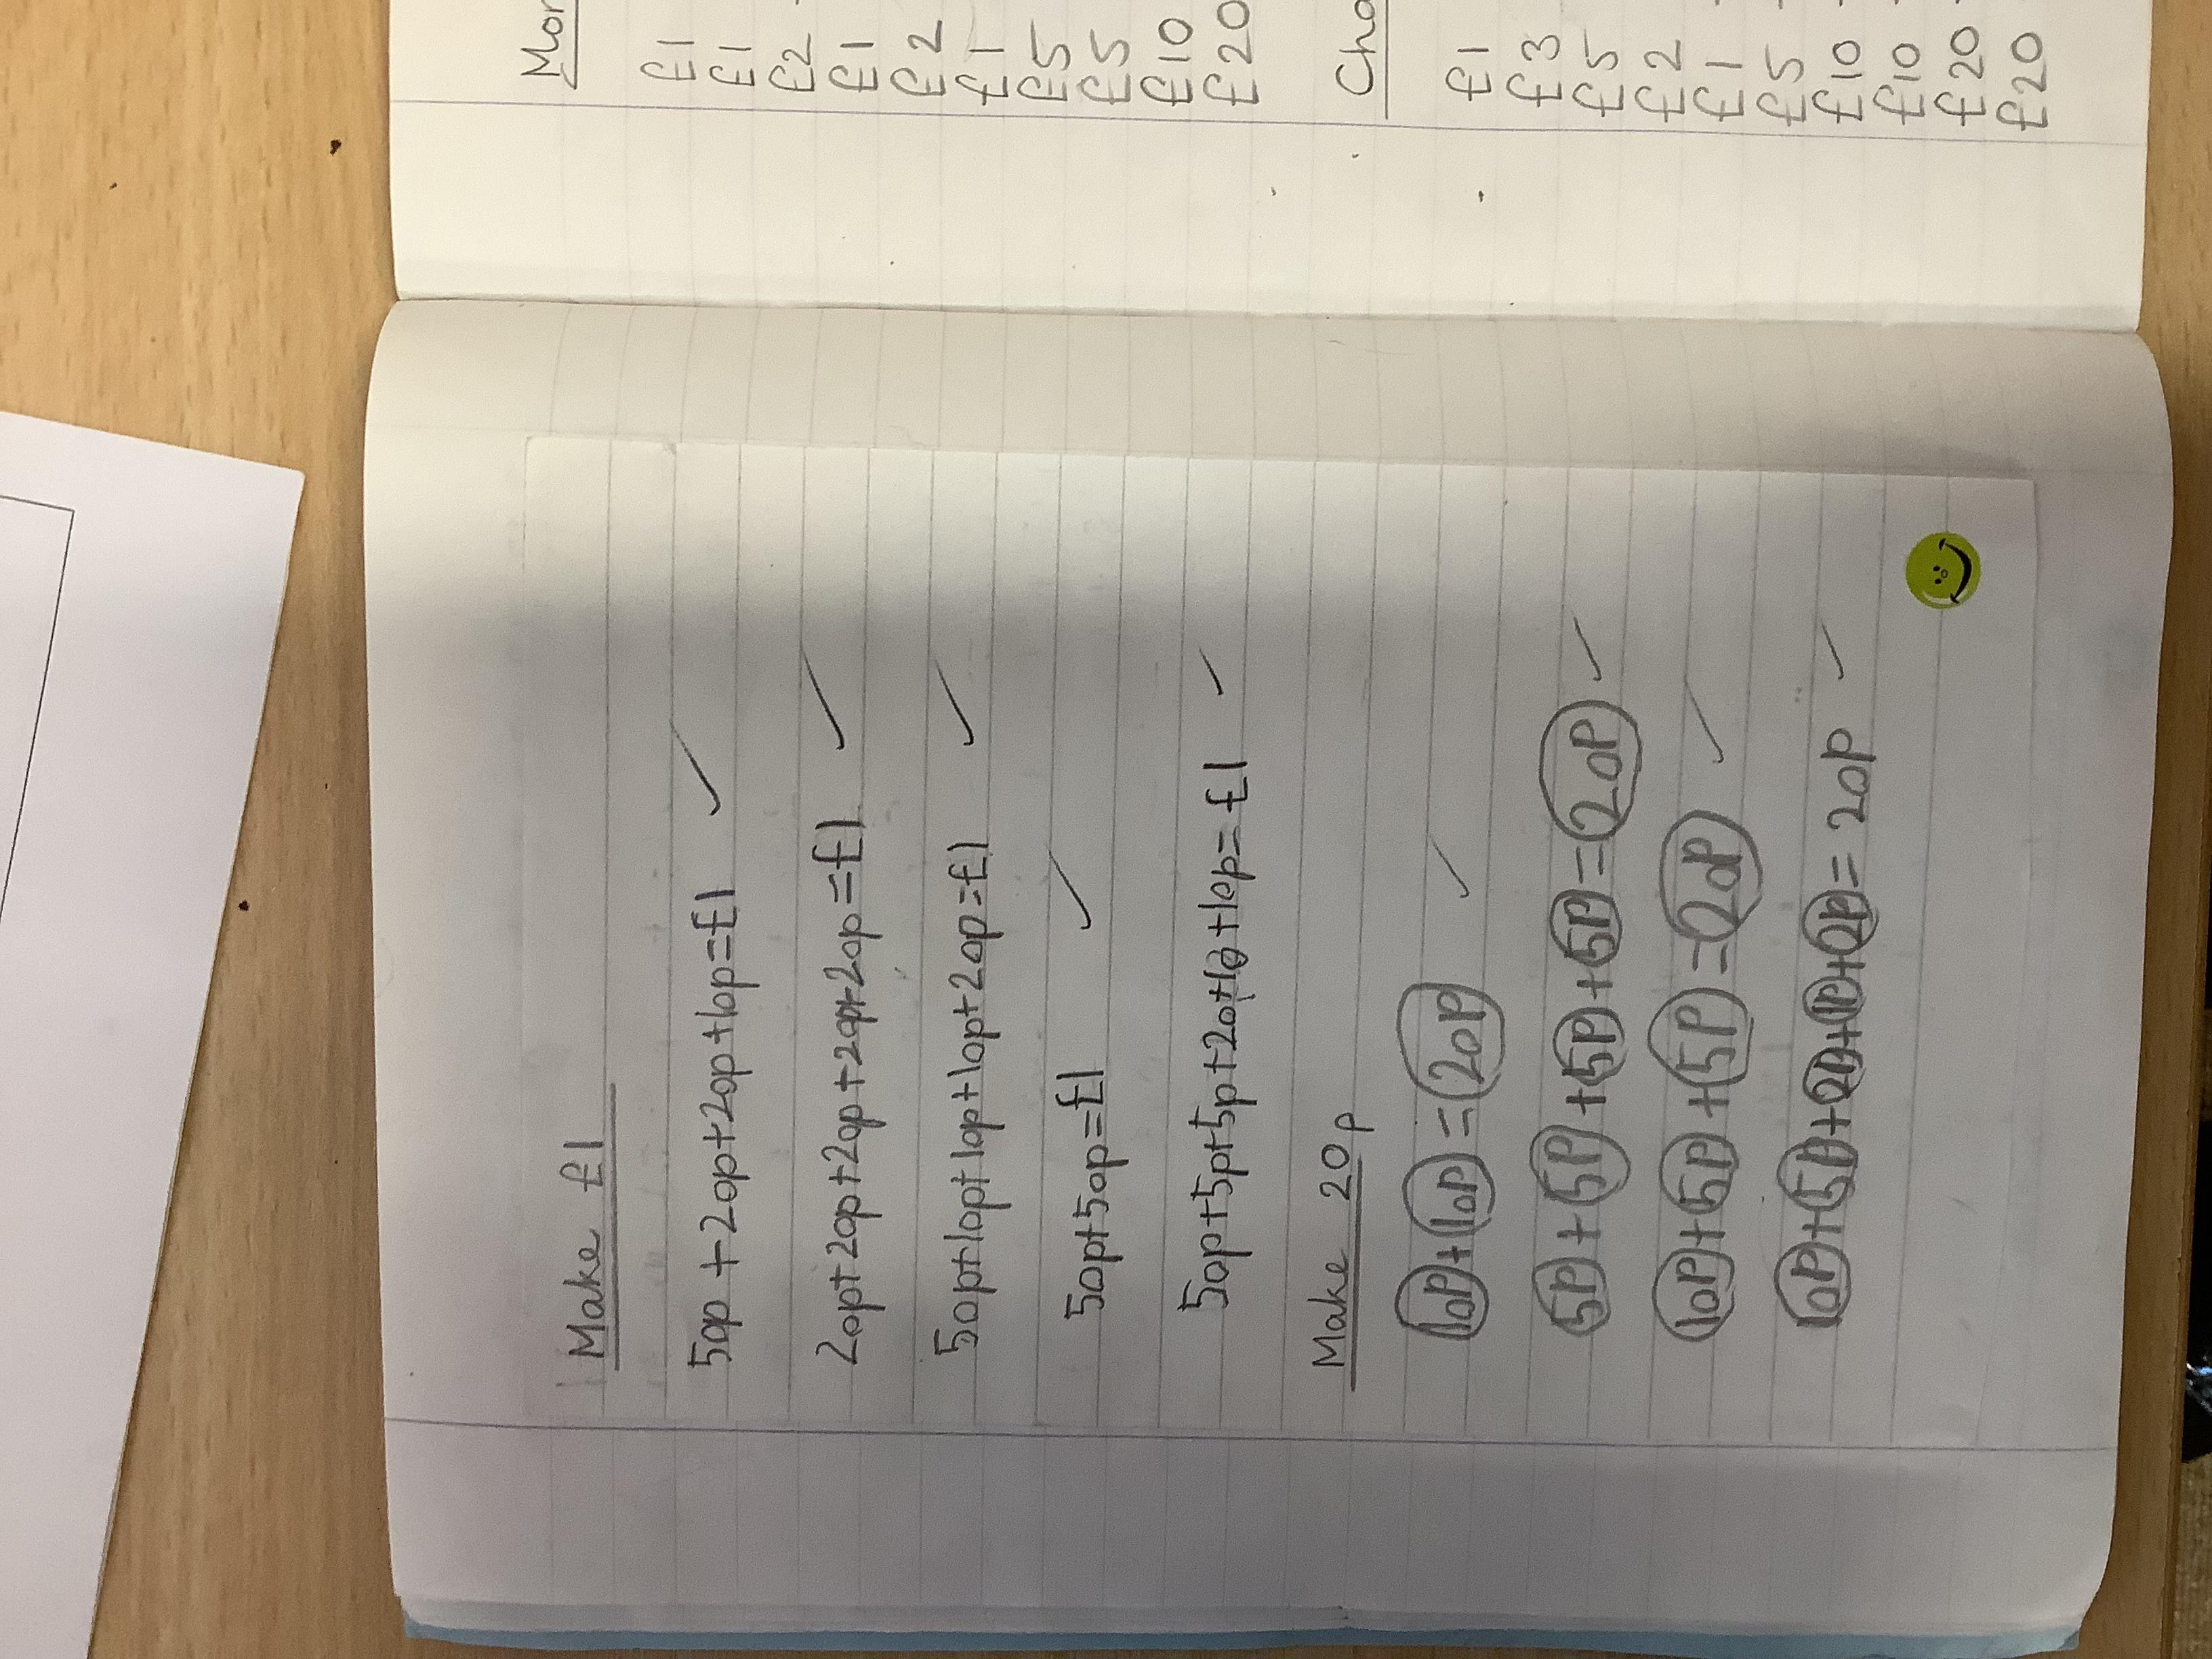 Make £1
50p + 20p+20p+10p=£1
20p+20p+20p+20p+20p=£1
50p+10p+10p+10p+20p=£1
50p+50p=£1
50p+5p+5p+20+10+10p=£1
Make 20p
10P+10P=20P
5P+5P+5P+5P=20P
10P+5P+5P=20P
10P+5P+2P+1P+2P=20P
Mor
£1
£1
£2
£1
£2
£1
£5
£5
£10
£20
Cha
£1
£3
£5
£2
£1
£5
£10
£10
£20
£20